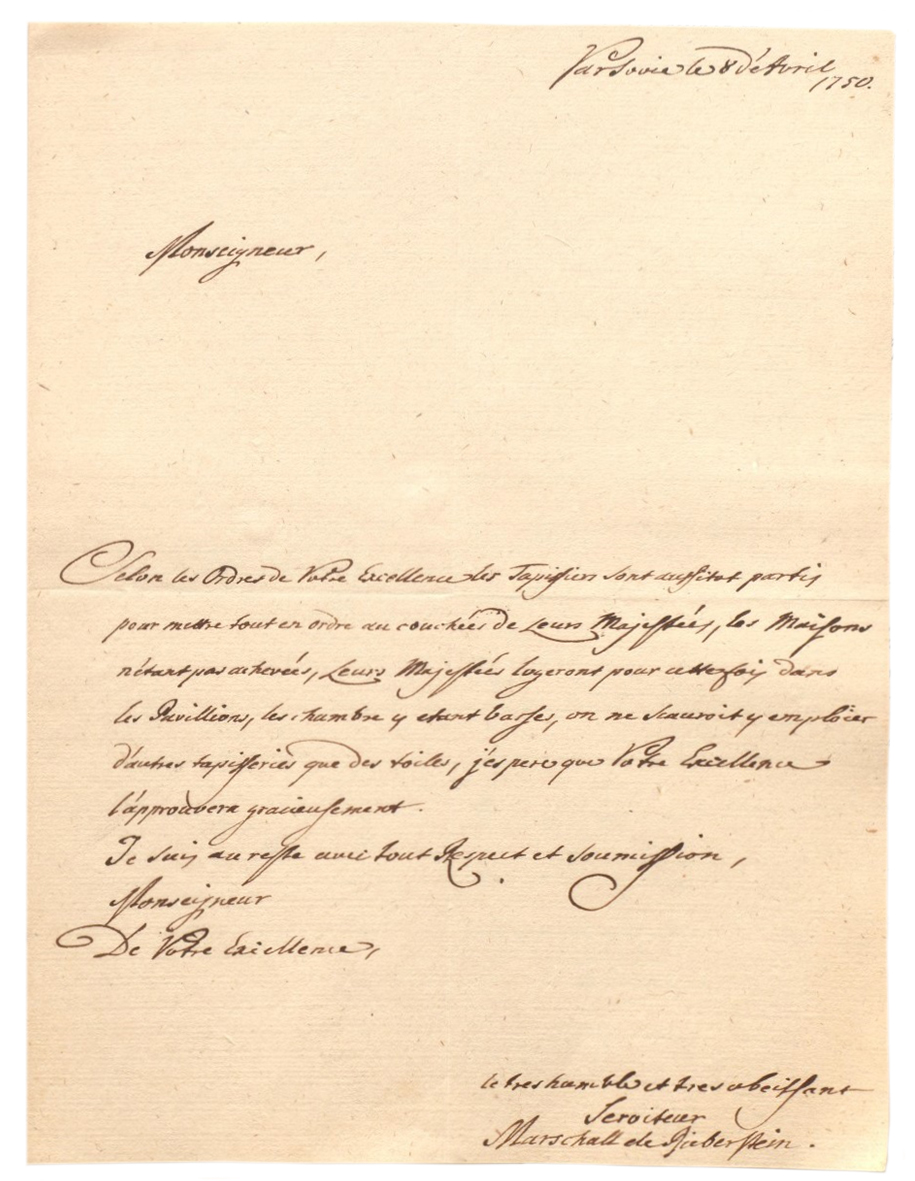 Varsovie le 8 d'Avril
1750.
Monseigneur,
Selon les Ordres de Votre Excellence les Tapissiers sont aussitot partis
pour mettre tout en ordre au couchées de Leurs Majestées, les Maisons
n'étant pas achevées, Leurs Majestées logeront pour cette fois dans
les Pavillions, les chambre y etant basses, on ne scauroit y emploier
d'autres tapisseries que des toiles, j'espere que Votre Excellence
l'approuvera gracieusement.
Je suis au reste avec tout Respect et soumission,
Monseigneur
De Votre Excellence,
le tres humble et tres obeissant
Serviteur
Marschall de Bieberstein.